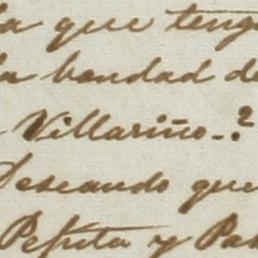 la que teng
la bondad de
Villariño-?
Deseando que
Pepita y Pa